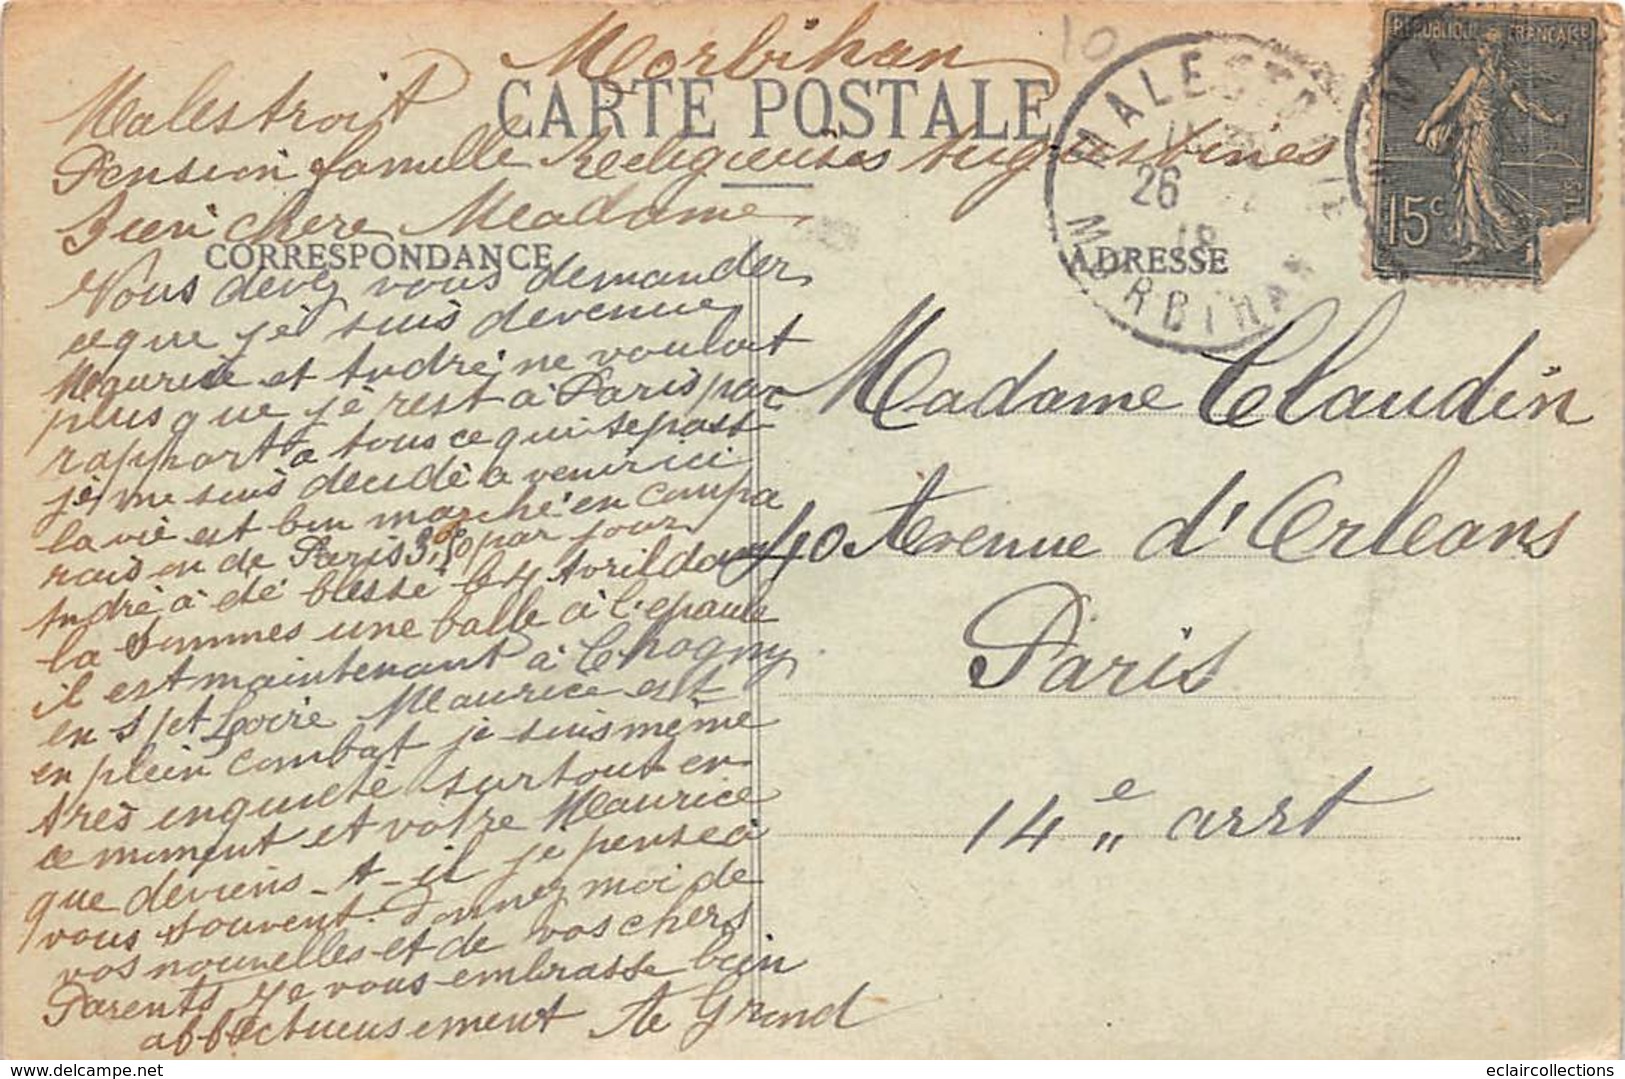 Morbihan
Malestroit
CARTE POSTALE
Pension famille Religieuses Augustines
Bien chere Madame
CORRESPONDANCE
Vous devez vous demander
ce que jé suis devenue
Maurice et André ne voulait
plus que jé rest à Paris par
rapport à tous ce qui se passt
jé me suis decidé a venir ici
la vie est bon marché en compa
rais en de Paris 3,50 par jour
André à été blessé le 4 Avril dans
la Sommes une balle à l'epaule
il est maintenant à Chagny
en S et Loire Maurice est
en plein combat je suis même
très inquiété surtout en
ce moment et votre Maurice
que deviens-t-il je pense à
vous souvent. Donnez moi de
vos nouvelles et de vos chers
Parents je vous embrasse bien
affectueusement A Le Grand
10
MALESTROIT
26
18
MORBIHAN
REPUBLIQUE FRANÇAISE
15c
ADRESSE
Madame Claudin
40 Avenue d'Orleans
Paris
14e arrt
delcampe.net
eclaircollections